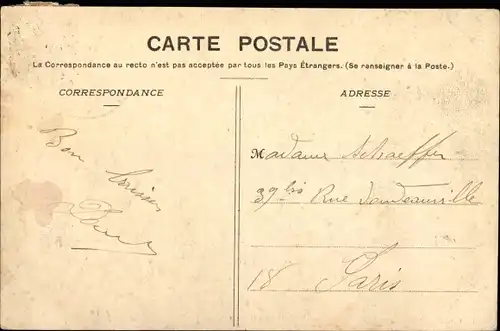 CARTE POSTALE
La Correspondance au recto n'est pas acceptée par tous les Pays Étrangers. (Se renseigner à la Poste.)
CORRESPONDANCE
ADRESSE
Bon
Madame Schaeffer
39 bis Rue Doudeauville
18 Paris